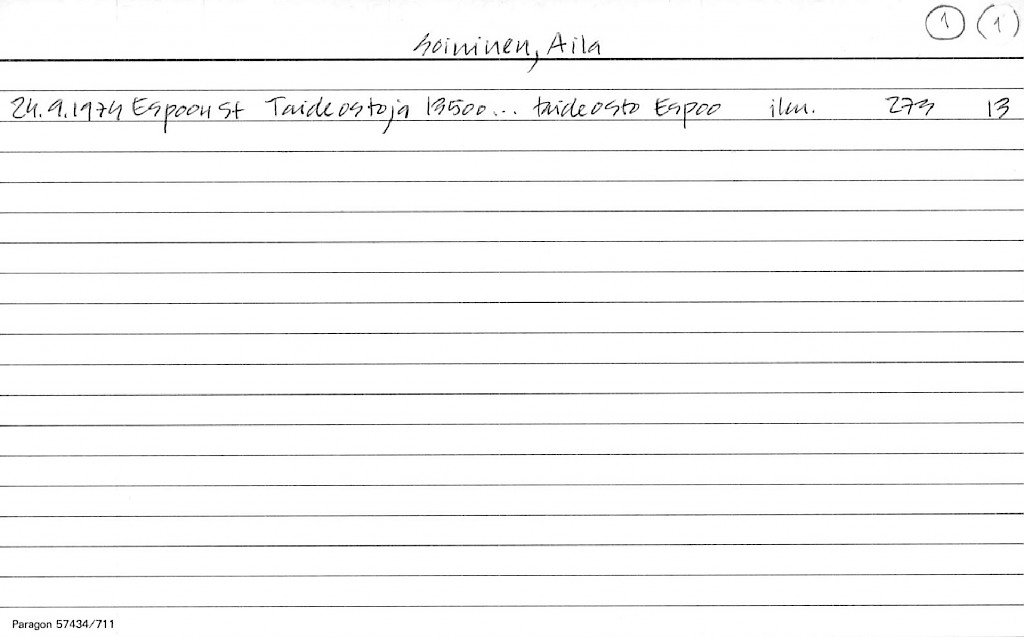 1 (1)
Soininen, Aila
24.9.1974 Espoon st Taideostoja 13500... taideosto Espoo ilm. 273 13
Paragon 57434/711